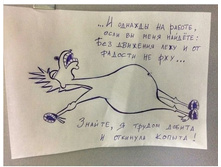 ...И однажды на работе,
если вы меня найдёте:
Без движения лежу и от
радости не ржу...
Знайте, я трудом добита
и откинула копыта!